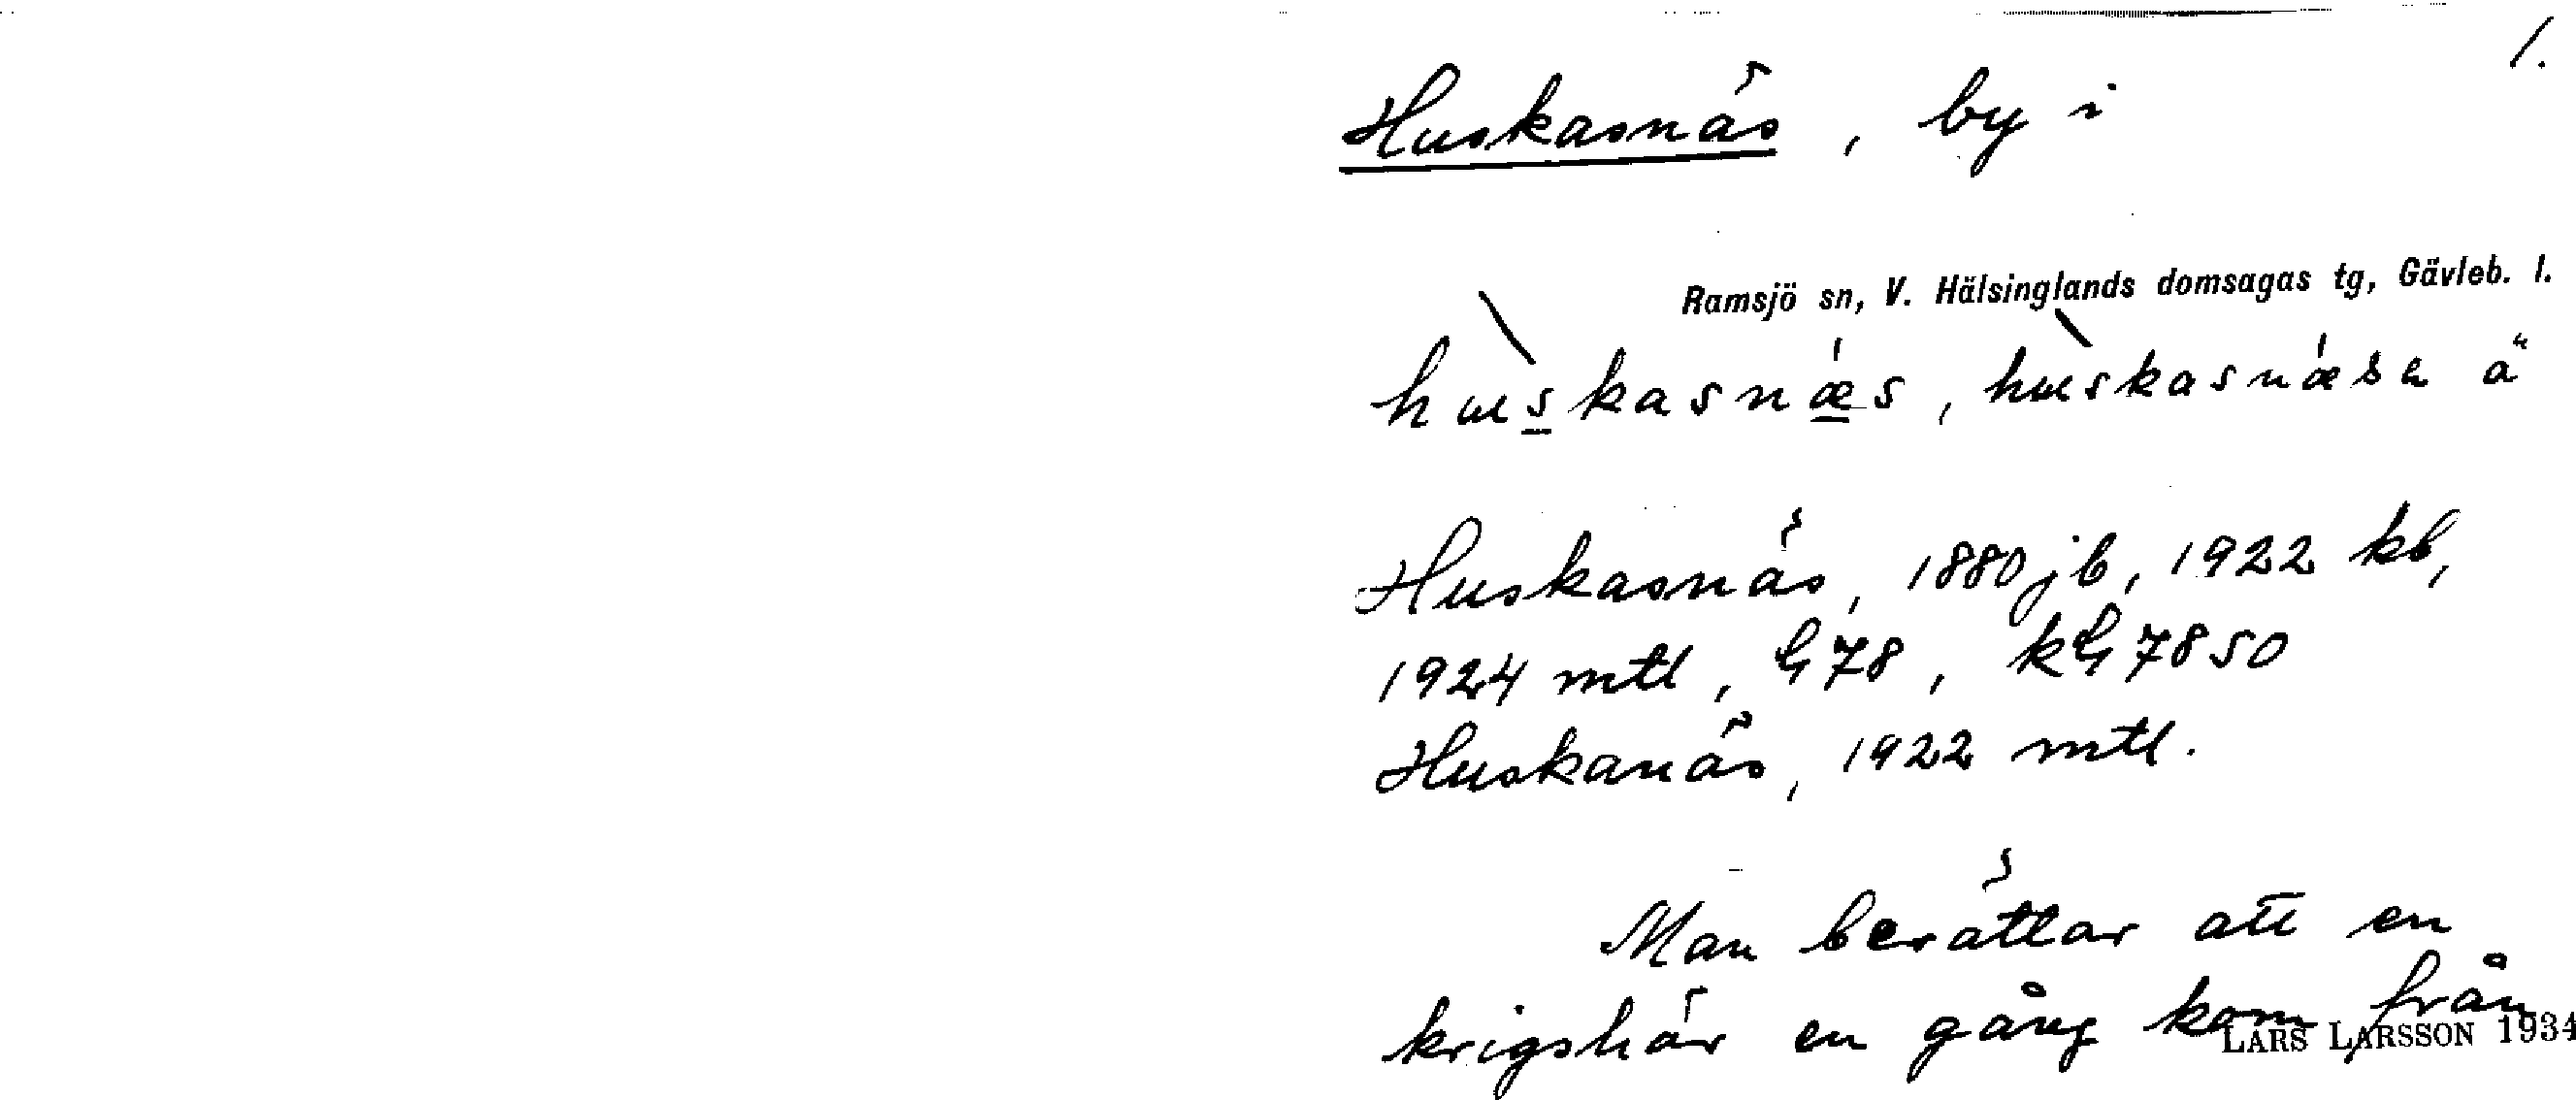 1.
Huskasnäs, by i
Ramsjö sn, V. Hälsinglands domsagas tg, Gävleb. l.
huskasnæs, huskasnæsa ä
Huskasnäs, 1880 jb, 1922 kb,
1924 mtl, G 78, kG 7850
Huskanäs, 1922 mtl.
Man berättar att en
krigshär en gång kom från
LARS LARSSON 1934